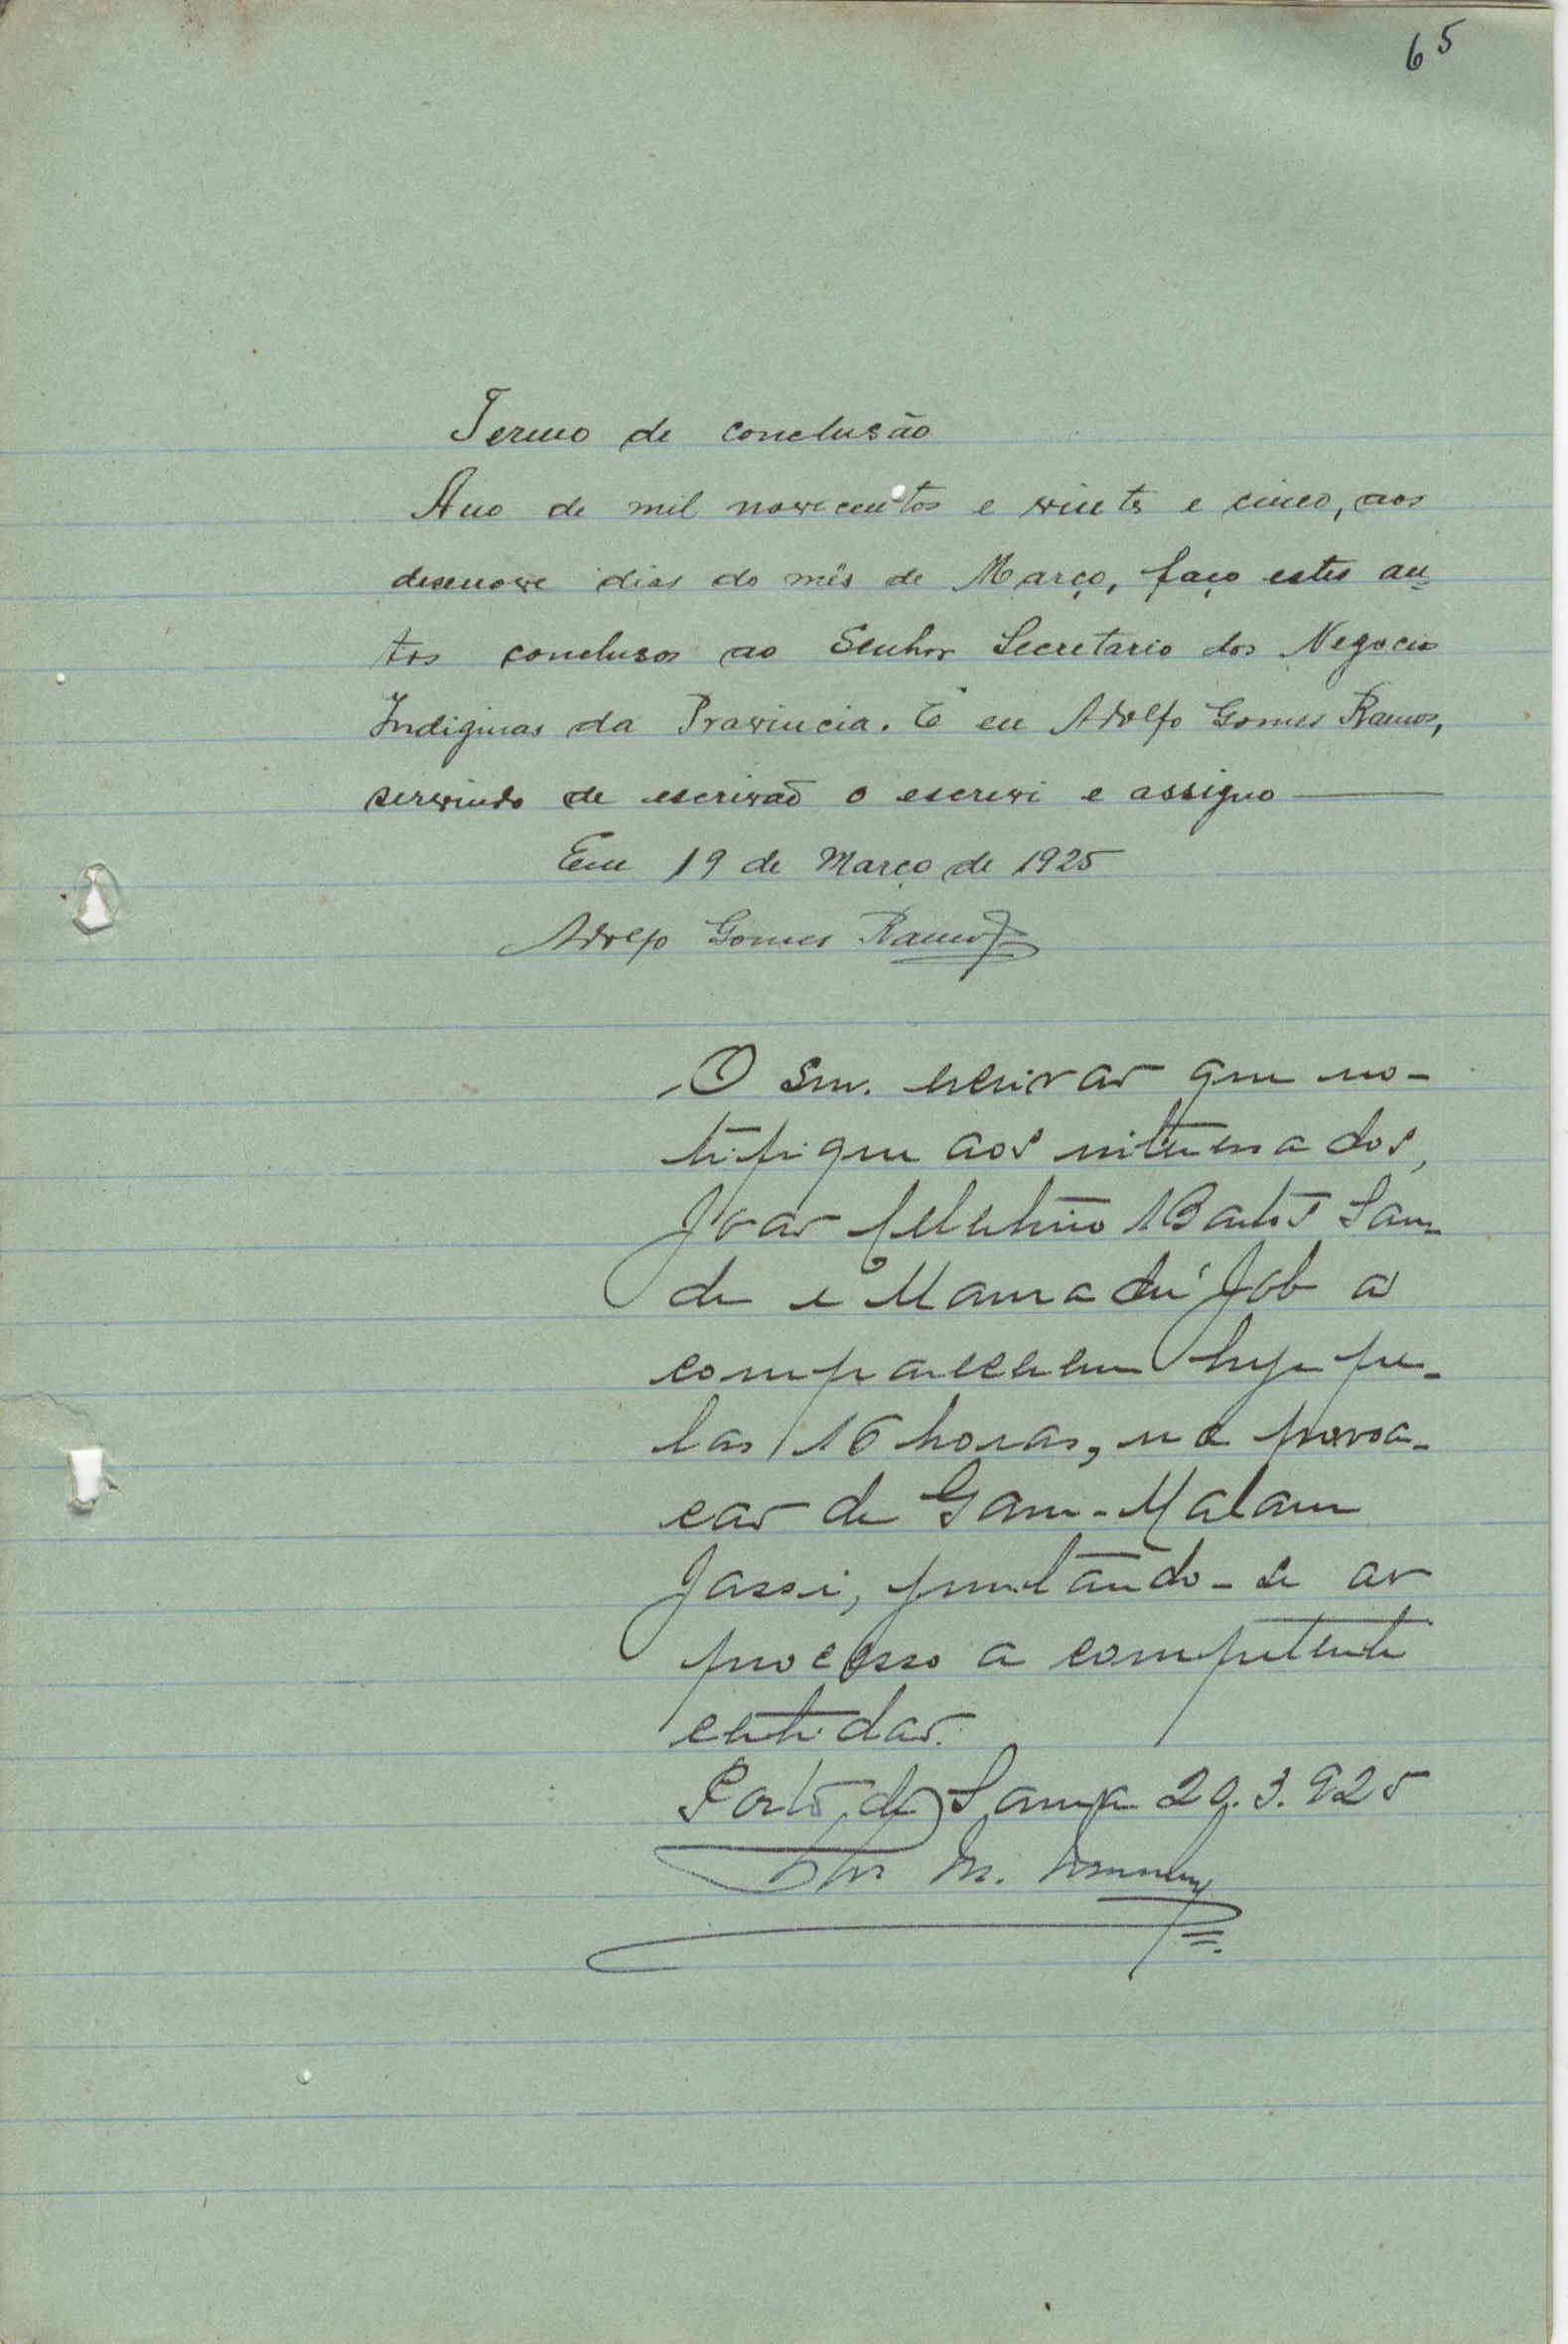 65
Termo de conclusão
Ano de mil novecentos e vinte e cinco, aos
desenove dias do mês de Março, faço estes au-
tos conclusos ao Senhor Secretario dos Negocios
Indiginas da Provincia. E eu Adolfo Gomes Ramos,
servindo de escrivão o escrevi e assigno
Em 19 de Março de 1925
Adolfo Gomes Ramos
O Snr. escrivão que no-
tifique aos interessados,
João Celestino
de e Mamadú Job a
comparecerem hoje pe-
las 16 horas, na povoa-
ção de Gam-Malam
Jassi, juntando-se ao
processo a competente
certidão.
Porto de 3.925